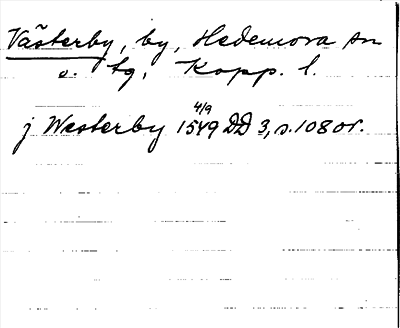 Västerby, by, Hedemora sn
o. tg, Kopp. l.
4/9
j Westerby 1549 DD 3, s. 108 or.